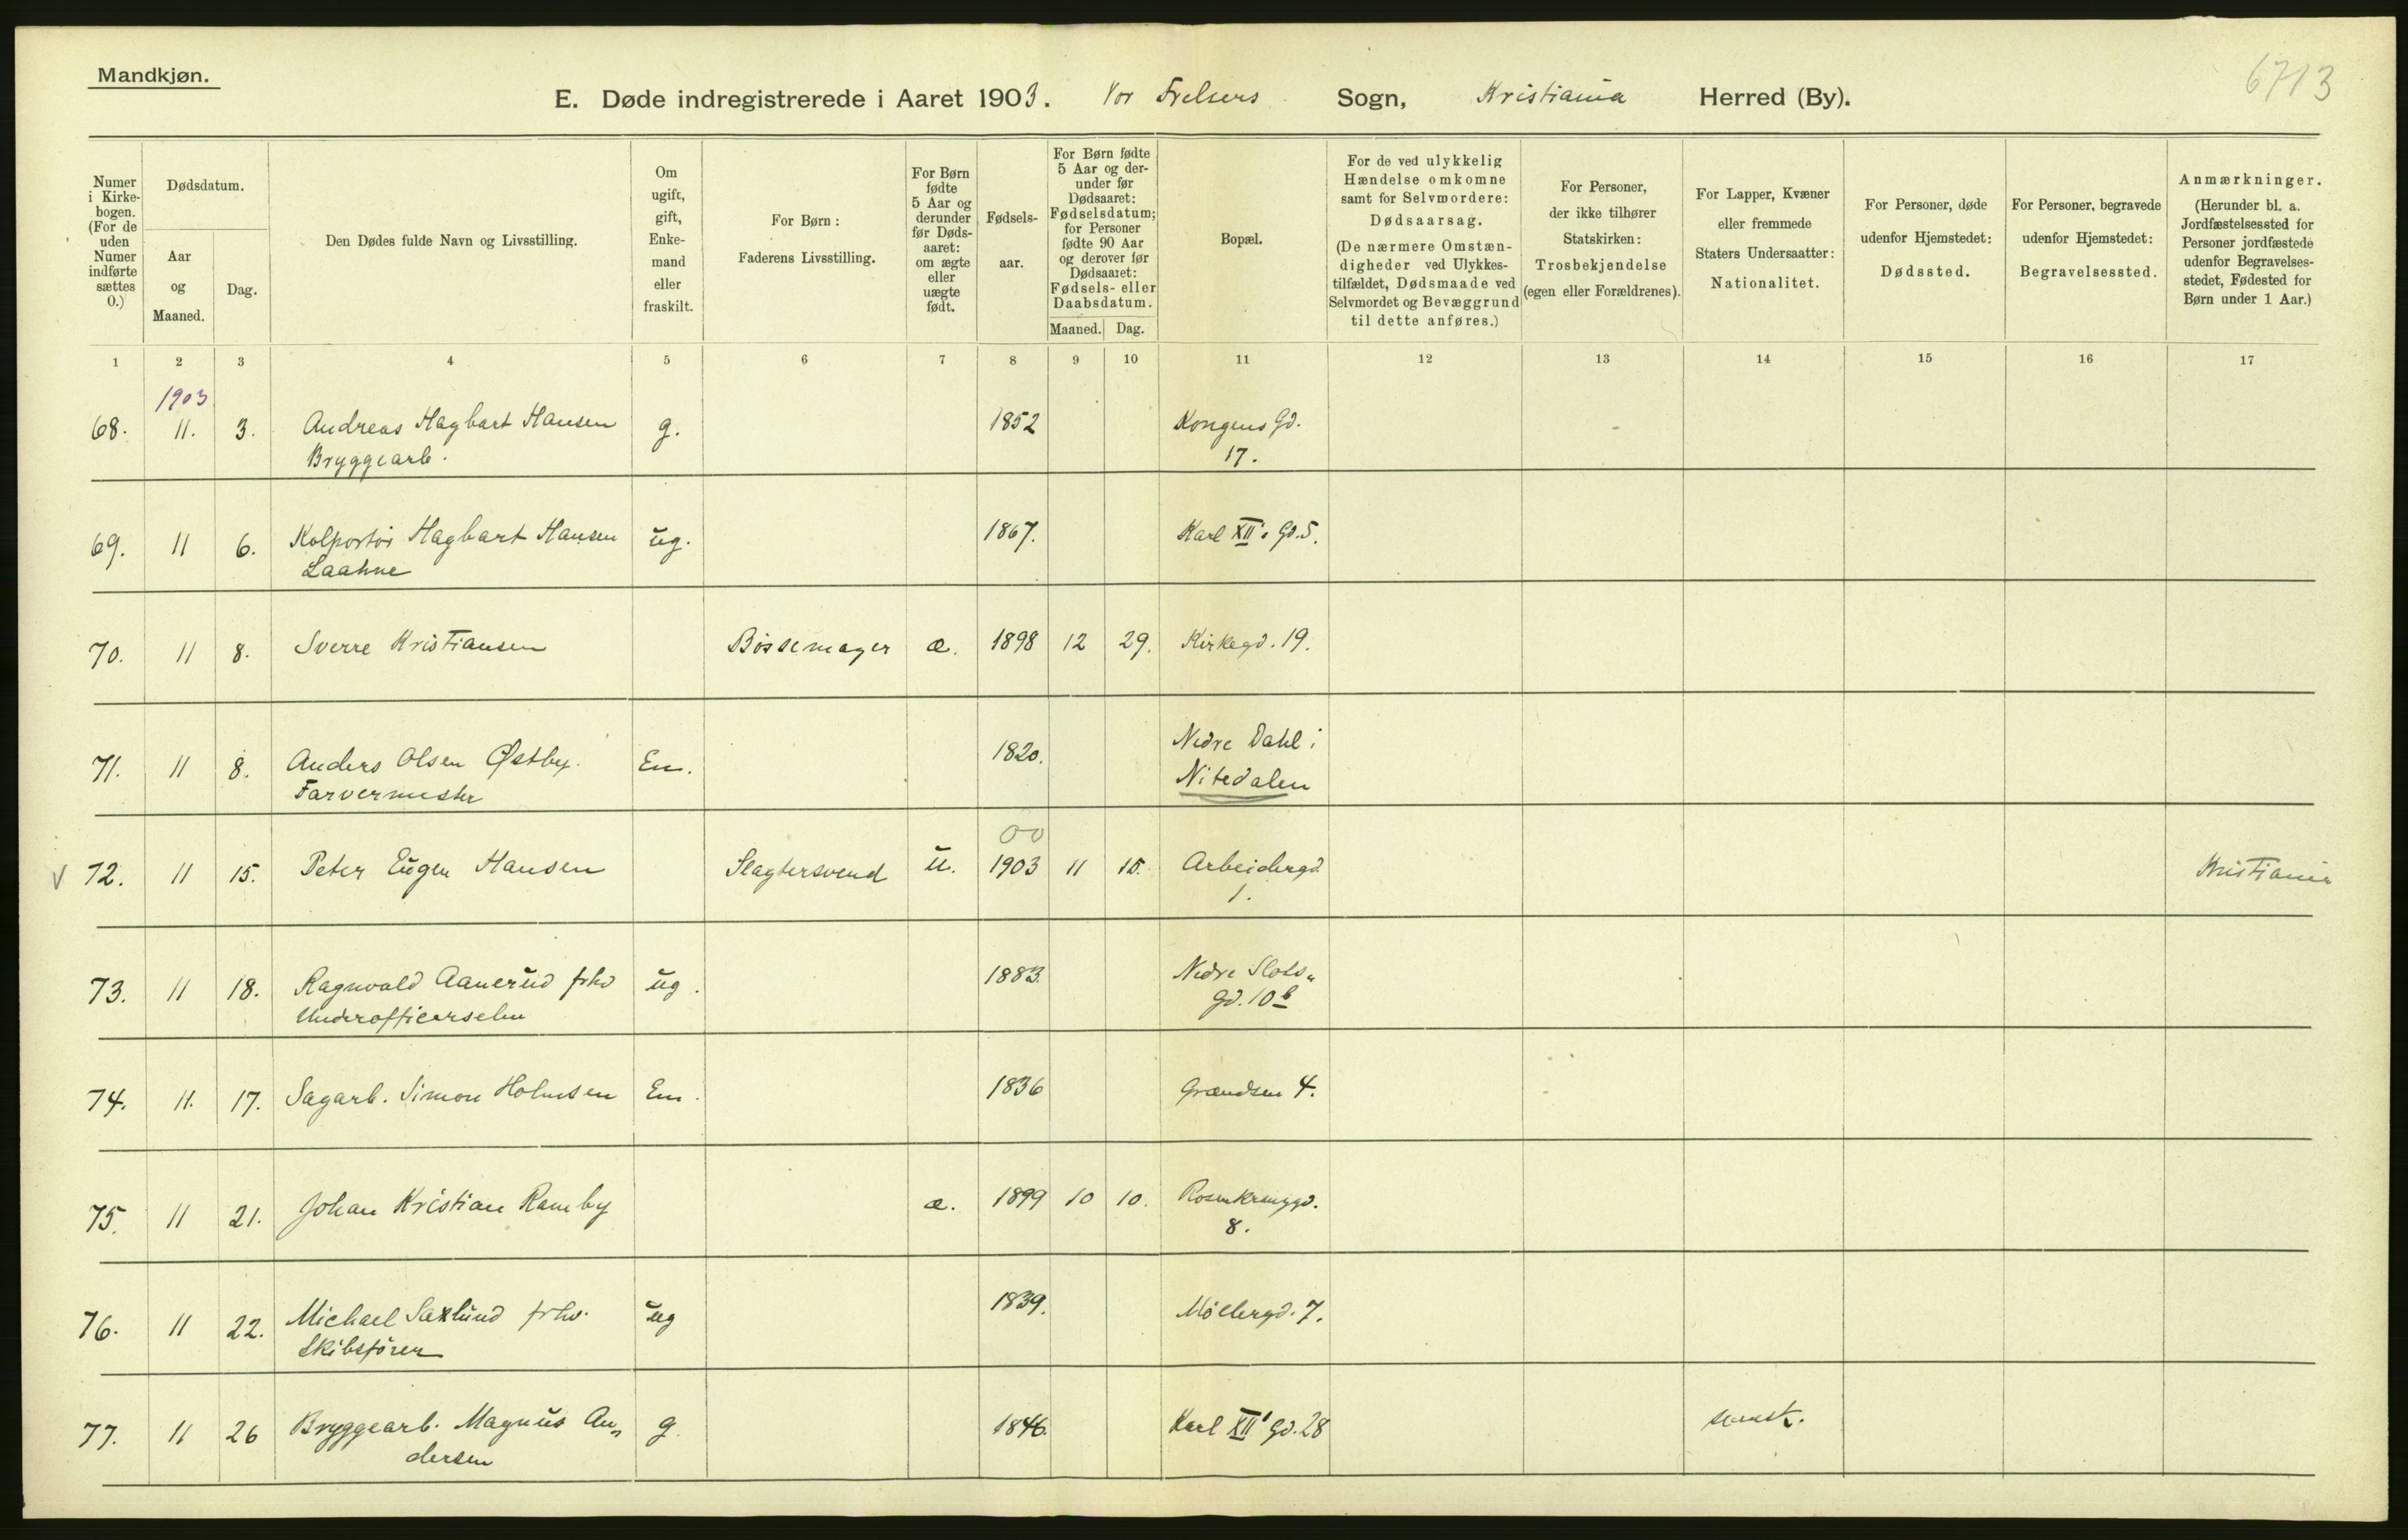 Mandkjøn.
6713
E. Døde indregistrerede i Aaret 1903. Vor Frelsers Sogn, Kristiania Herred (By).
Numer i Kirkebogen. (For de uden Numer indførte sættes 0.)
Dødsdatum.
Aar og Maaned.
Dag.
Den Dødes fulde Navn og Livsstilling.
Om ugift, gift, Enkemand eller fraskilt.
For Børn: Faderens Livsstilling.
For Børn fødte 5 Aar og derunder før Dødsaaret: om ægte eller uægte født.
Fødselsaar.
For Børn fødte 5 Aar og derunder før Dødsaaret: Fødselsdatum; for Personer fødte 90 Aar og derover før Dødsaaret: Fødsels- eller Daabsdatum.
Maaned. Dag.
Bopæl.
For de ved ulykkelig Hændelse omkomne samt for Selvmordere: Dødsaarsag. (De nærmere Omstændigheder ved Ulykkestilfældet, Dødsmaade ved Selvmordet og Bevæggrund til dette anføres.)
For Personer, der ikke tilhører Statskirken: Trosbekjendelse (egen eller Forældrenes).
For Lapper, Kvæner eller fremmede Staters Undersaatter: Nationalitet.
For Personer, døde udenfor Hjemstedet: Dødssted.
For Personer, begravede udenfor Hjemstedet: Begravelsessted.
Anmærkninger. (Herunder bl. a. Jordfæstelsessted for Personer jordfæstede udenfor Begravelsesstedet, Fødested for Børn under 1 Aar.)
1 2 3 4 5 6 7 8 9 10 11 12 13 14 15 16 17
1903
68. 11. 3. Andreas Hagbart Hansen g. 1852 Kongens Gd.
Bryggearb. 17.
69. 11 6. Kolportør Hagbart Hansen ug. 1867. Karl XII's Gd. 5.
Laahne
70. 11 8. Sverre Kristiansen Bøssemager æ. 1898 12 29. Kirkegd. 19.
71. 11 8. Anders Olsen Østby. Em. 1820. Nedre Dahl i
Farvermester Nitedalen
00
V 72. 11 15. Peter Eugen Hansen Slagtersvend u. 1903 11 15. Arbeidergd. Kristiania
1.
73. 11 18. Ragnvald Aanerud frhv ug. 1883. Nedre Slots„
Underofficerselev Gd. 10 b
74. 11. 17. Sagarb. Simon Holmsen Em. 1836 Grændsen 4.
75. 11 21. Johan Kristian Ramby æ. 1899 10 10. Rosenkranzgd.
8.
76. 11 22. Michael Saxlund frhv. ug 1839. Møllergd. 7.
Skibsfører
77. 11 26 Bryggearb. Magnus An„ g. 1846. Karl XII' Gd. 28 svensk.
dersen